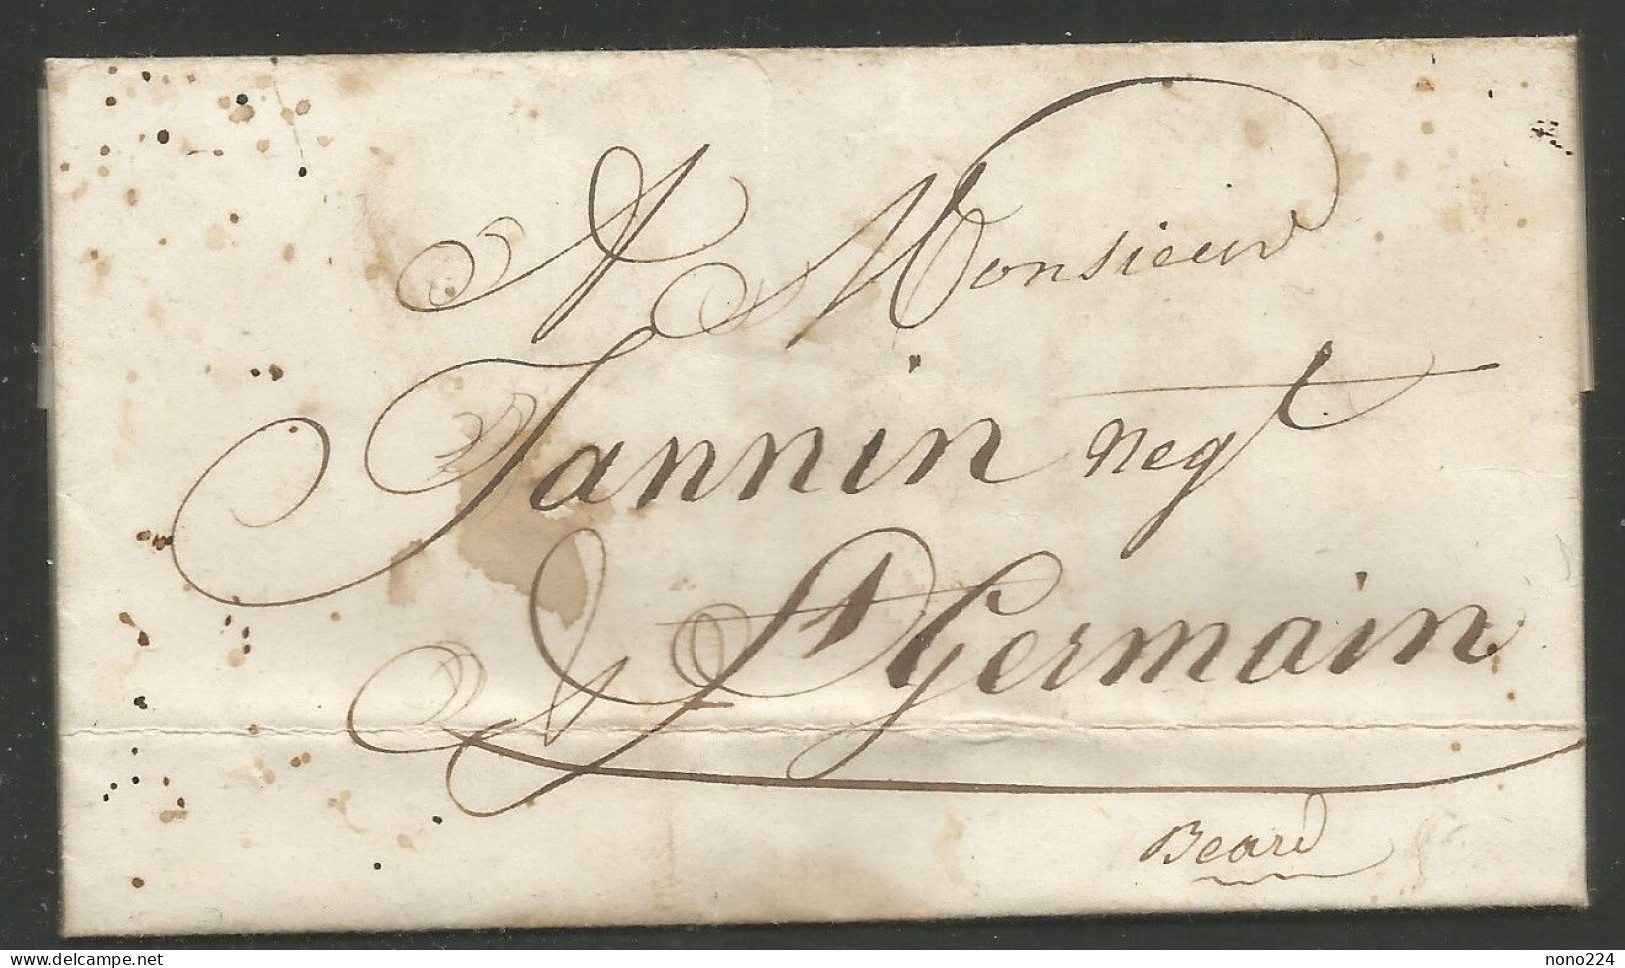 A Monsieur
Jannin negt
A St Germain
Beard
delcampe.net
nono224